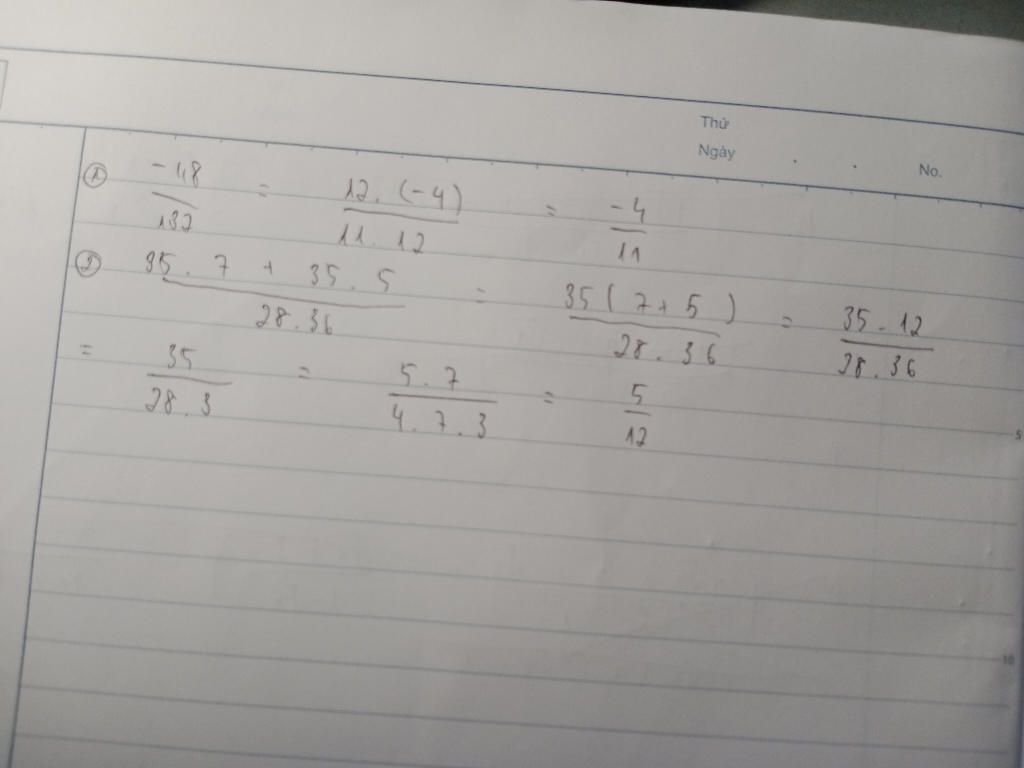 Thứ
Ngày . . No.
① -48/132 = 12.(-4)/11.12 = -4/11
② 35.7 + 35.5/28.36 = 35(7+5)/28.36 = 35.12/28.36
= 35/28.3 = 5.7/4.7.3 = 5/12
5
10